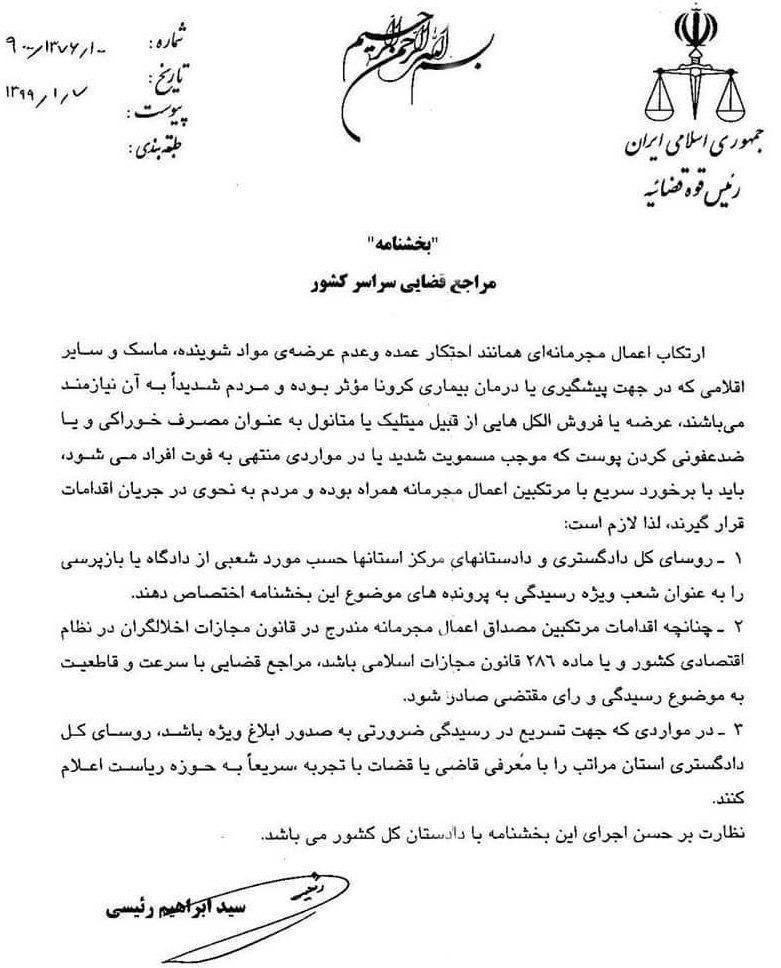 بسم الله الرحمن الرحیم
جمهوری اسلامی ایران
رئیس قوه قضائیه
شماره: ۹۰۰۰/۱۳۷۶/۱۰۰
تاریخ: ۱۳۹۹/۱/۷
پیوست:
طبقه بندی:
"بخشنامه"
مراجع قضایی سراسر کشور
ارتکاب اعمال مجرمانه‌ای همانند احتکار عمده وعدم عرضه‌ی مواد شوینده، ماسک و سایر
اقلامی که در جهت پیشگیری یا درمان بیماری کرونا مؤثر بوده و مردم شدیداً به آن نیازمند
می‌باشند، عرضه یا فروش الکل هایی از قبیل میتلیک یا متانول به عنوان مصرف خوراکی و یا
ضدعفونی کردن پوست که موجب مسمویت شدید یا در مواردی منتهی به فوت افراد می شود،
باید با برخورد سریع با مرتکبین اعمال مجرمانه همراه بوده و مردم به نحوی در جریان اقدامات
قرار گیرند، لذا لازم است:
۱ ـ روسای کل دادگستری و دادستانهای مرکز استانها حسب مورد شعبی از دادگاه یا بازپرسی
را به عنوان شعب ویژه رسیدگی به پرونده های موضوع این بخشنامه اختصاص دهند.
۲ ـ چنانچه اقدامات مرتکبین مصداق اعمال مجرمانه مندرج در قانون مجازات اخلالگران در نظام
اقتصادی کشور و یا ماده ۲۸۶ قانون مجازات اسلامی باشد، مراجع قضایی با سرعت و قاطعیت
به موضوع رسیدگی و رای مقتضی صادر شود.
۳ ـ در مواردی که جهت تسریع در رسیدگی ضرورتی به صدور ابلاغ ویژه باشد، روسای کل
دادگستری استان مراتب را با معرفی قاضی یا قضات با تجربه ،سریعاً به حوزه ریاست اعلام
کنند.
نظارت بر حسن اجرای این بخشنامه با دادستان کل کشور می باشد.
سید ابراهیم رئیسی